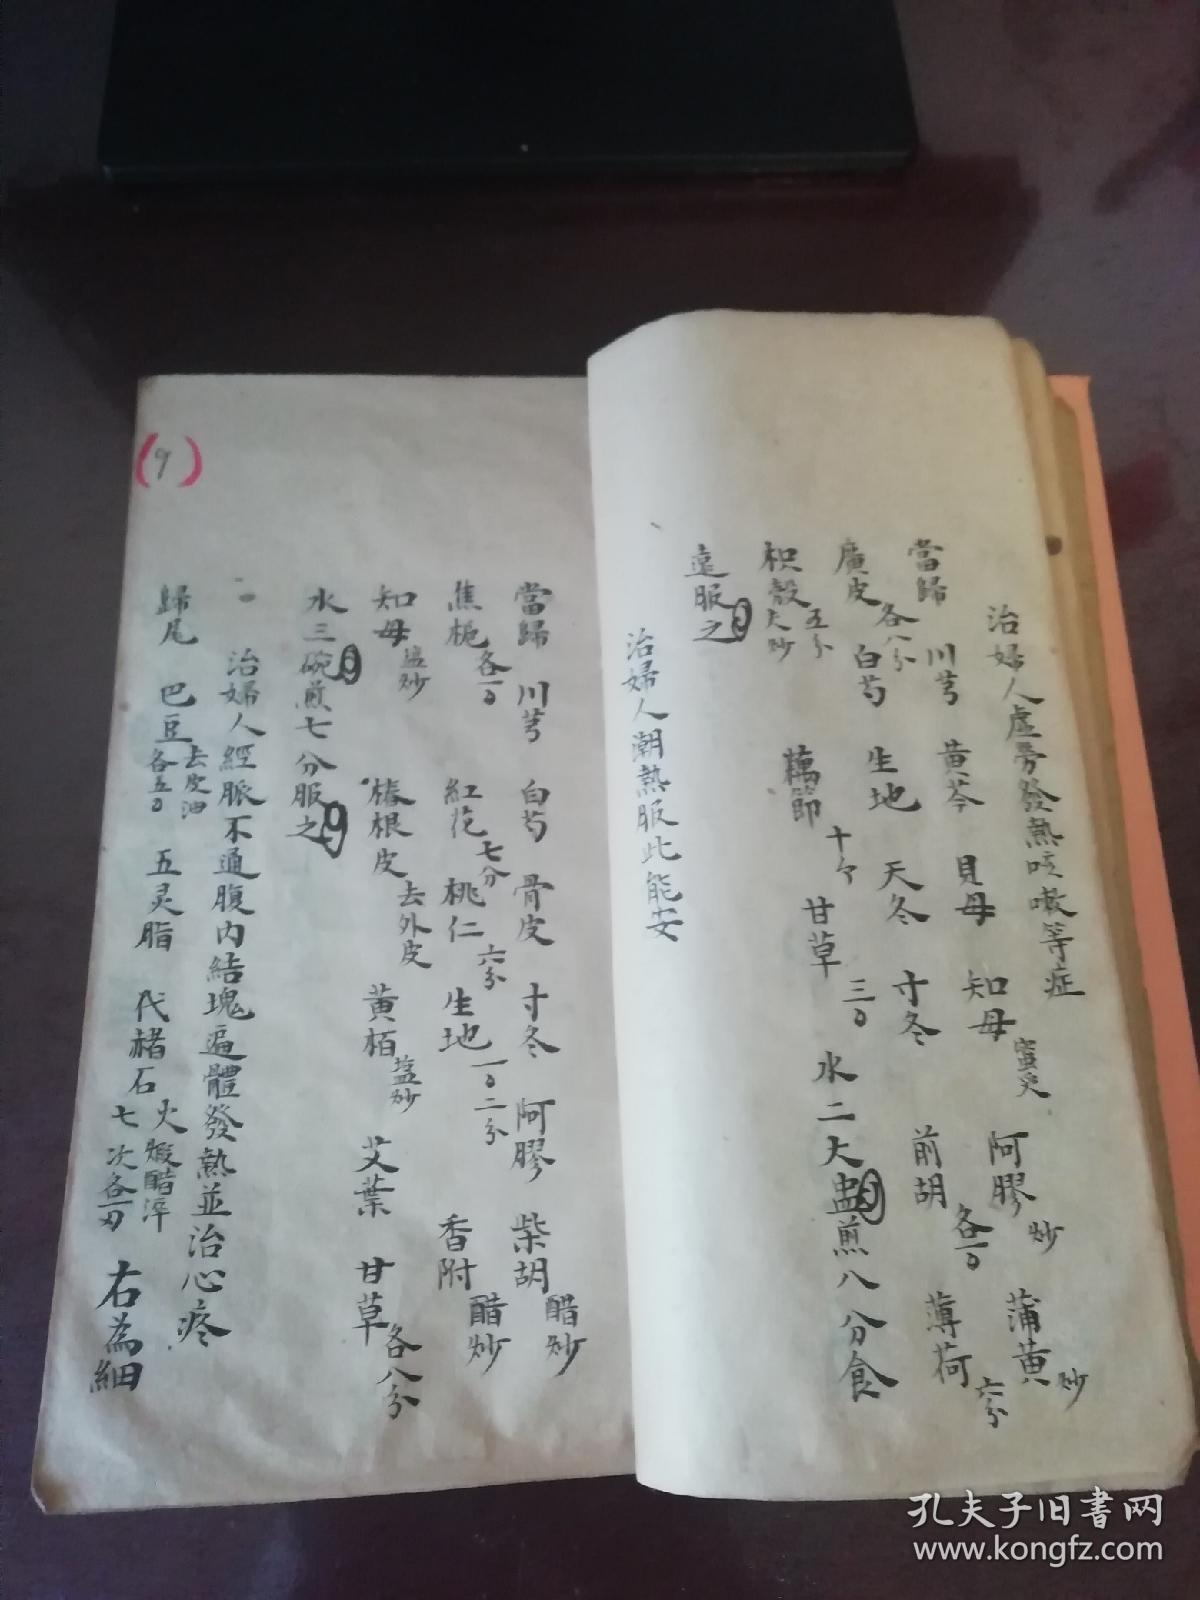 治婦人虛勞發熱咳嗽等症
當歸 川芎 黃芩 貝母 知母蜜炙 阿膠炒 蒲黃炒
廣皮各八分 白芍 生地 天冬 寸冬 前胡各一 薄荷六分
枳殼五分 炒 藕節十个 甘草三 水二大盅煎八分食
遠服之
治婦人潮熱服此能安
當歸 川芎 白芍 骨皮 寸冬 阿膠 柴胡醋炒
焦梔各一 紅花七分 桃仁六分 生地一 二分 香附醋炒
知母塩炒 椿根皮去外皮 黃栢塩炒 艾葉 甘草各八分
水三碗煎七分服之
治婦人經脈不通腹內結塊遍體發熱並治心疼
歸尾 巴豆去皮油各五 五灵脂 代赭石火煅醋淬七次各一 右為細
(9)
孔夫子旧书网
www.kongfz.com